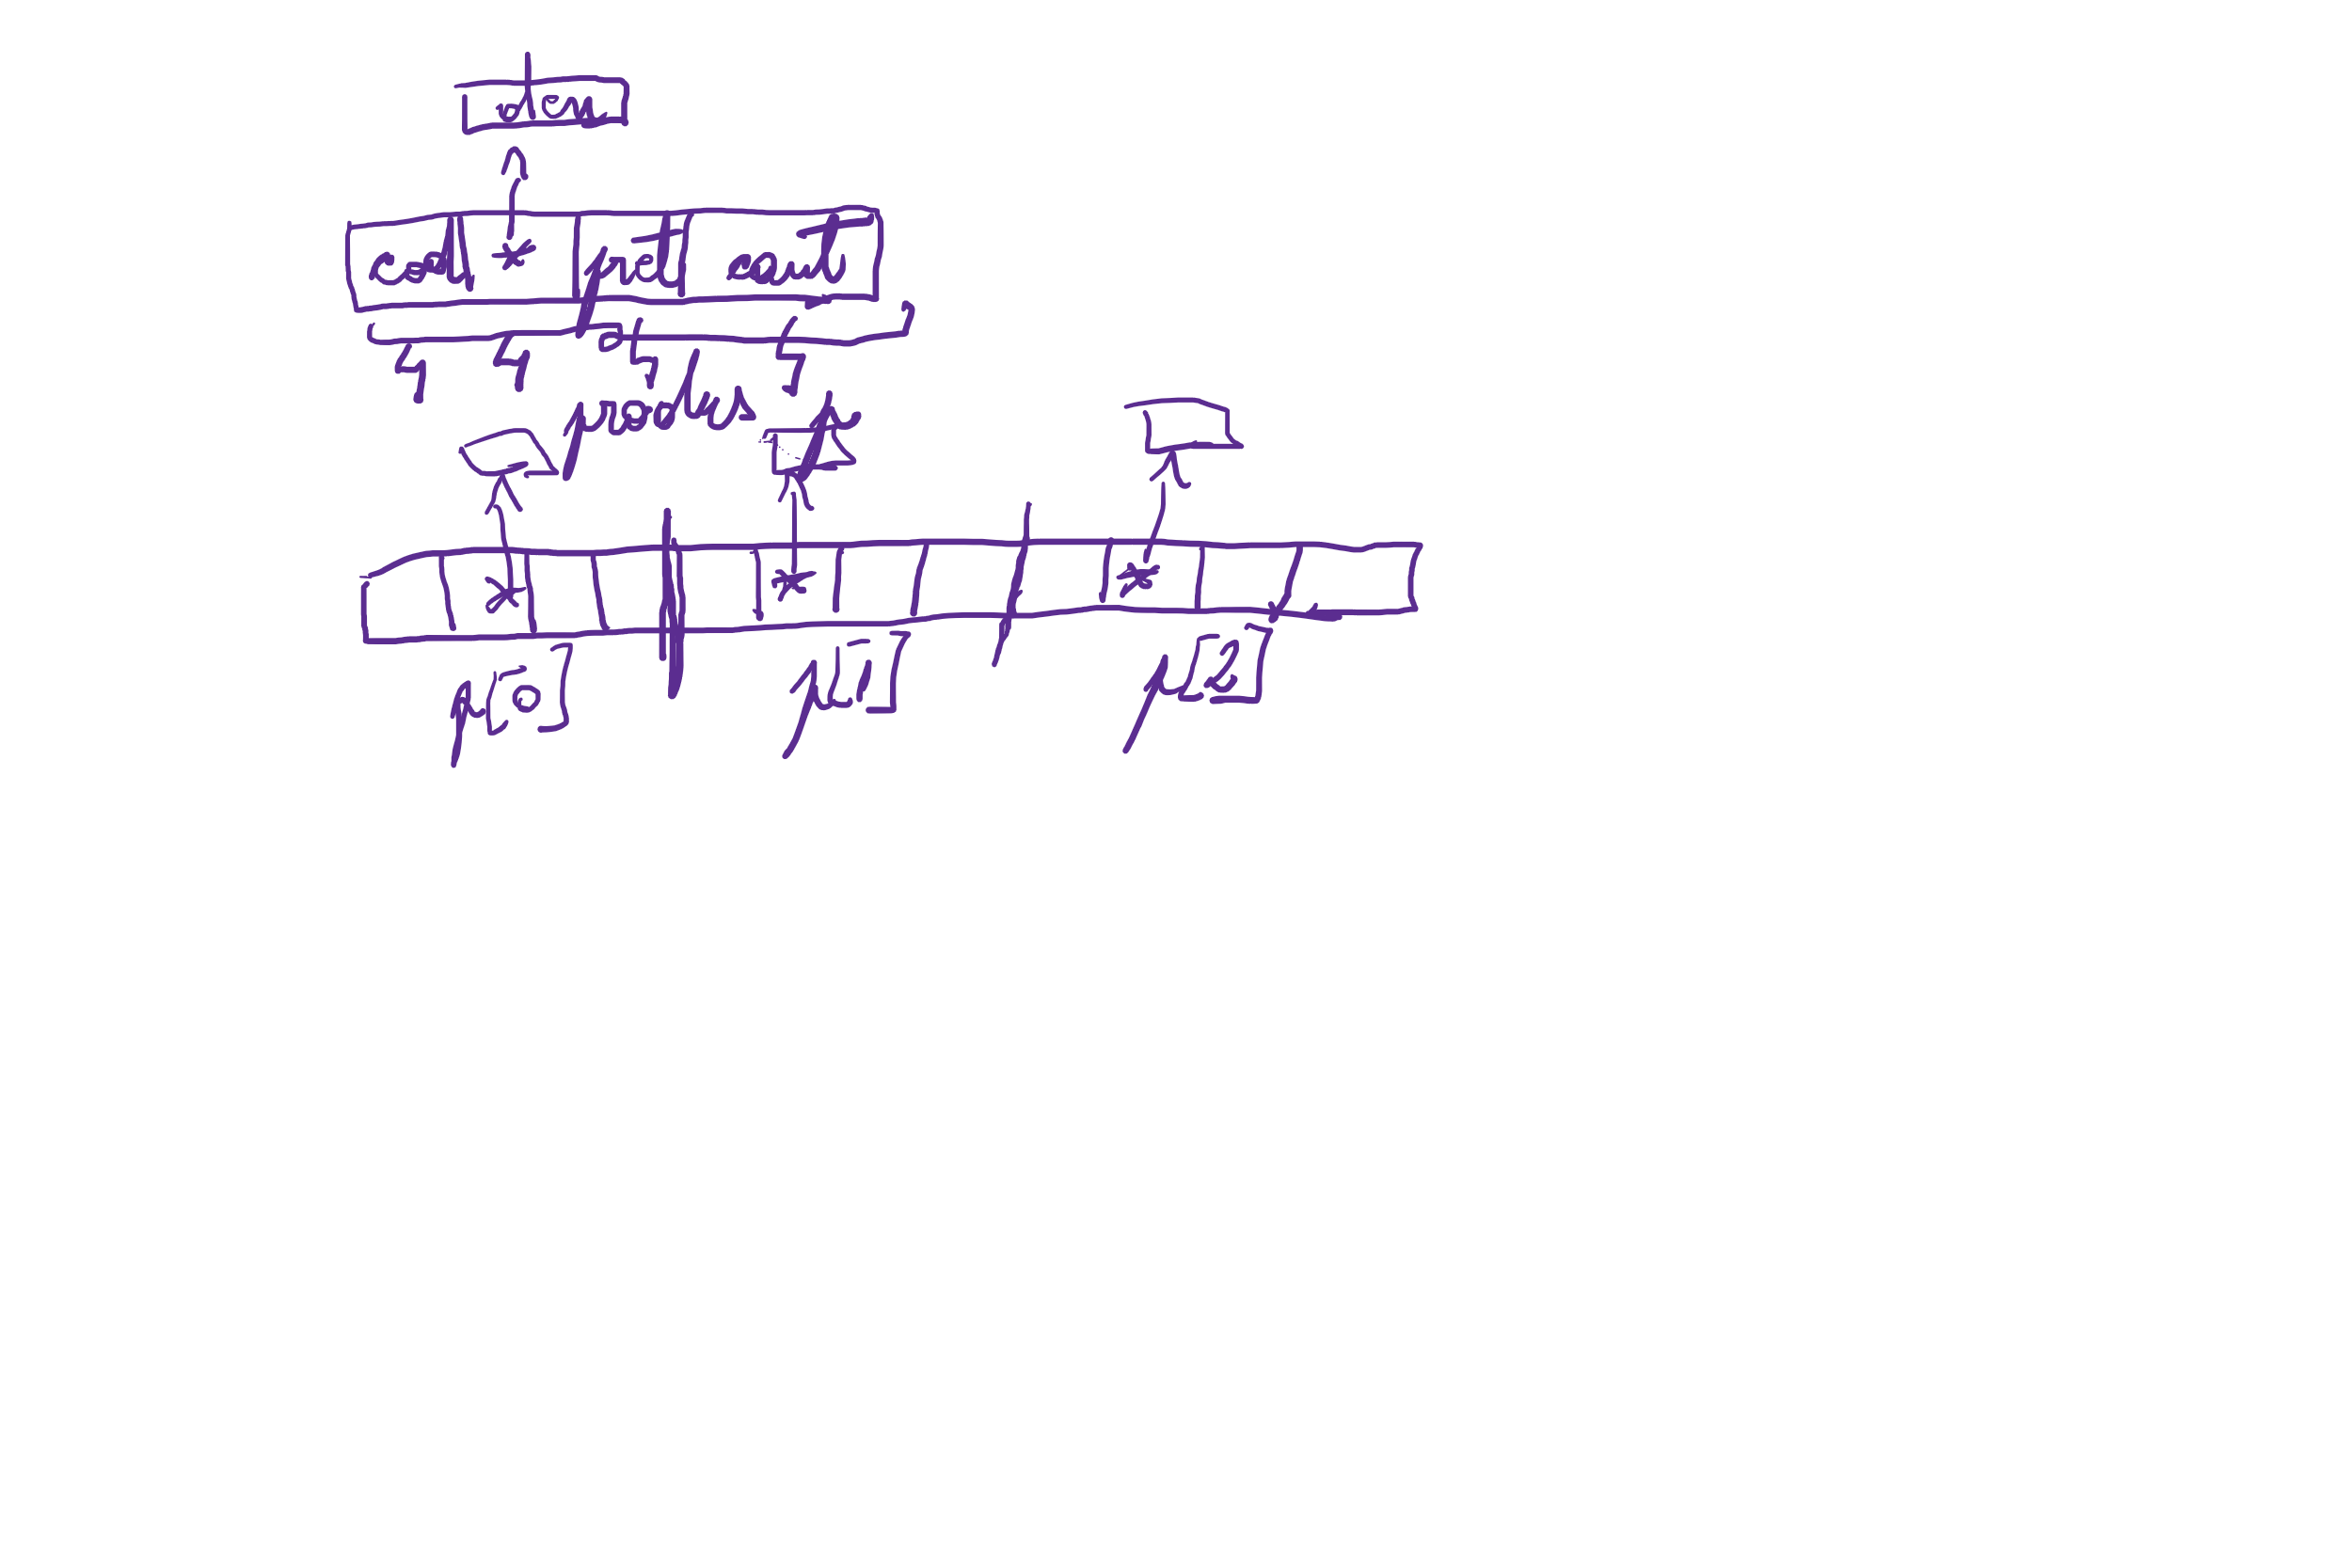 den
cod * pret cant
4 4 4 4
produs
* * *
p[0] p[1] p[2]